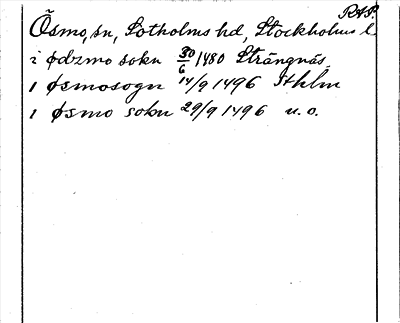 RAP.
Ösmo, sn, Sotholms hd, Stockholms l.
i ødzmo sokn 30/6 1480 Strängnäs
i øsmosogn 14/9 1496 Sthlm
i øsmo sokn 29/9 1496 u.o.